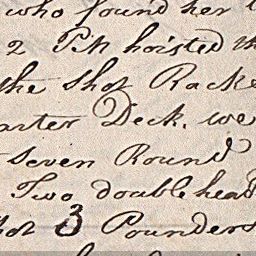 who found her
2 PM hoisted th
the shot Racke
arter Deck. we
seven Round
Two double head
hot 3 Pounders